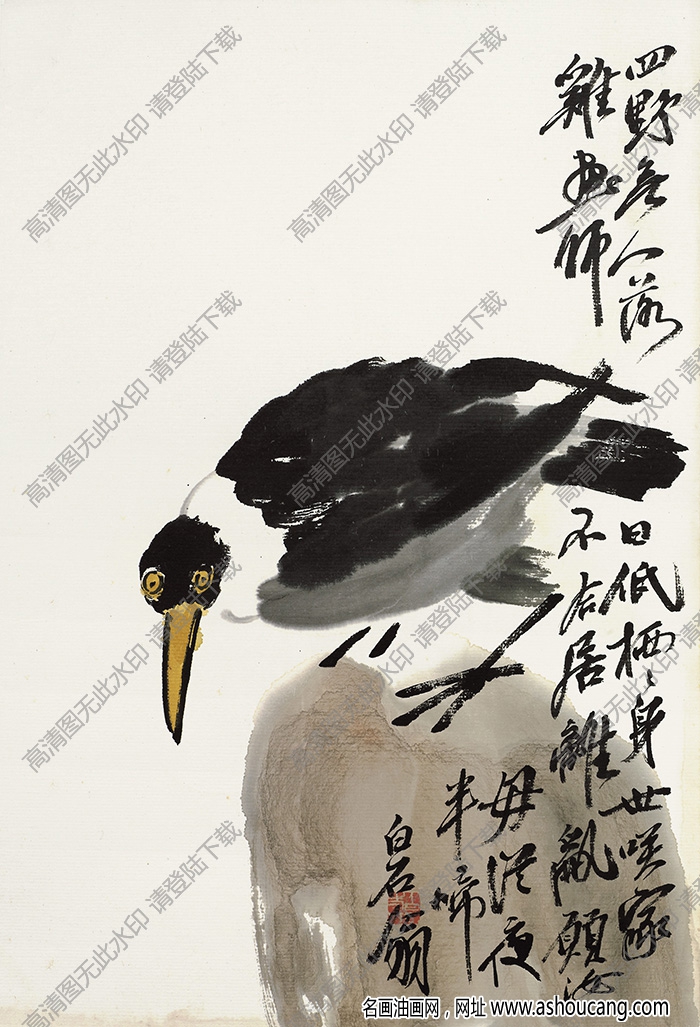 四野無人落日低栖〻身世咲家
雞畫師不居離亂願汝
毋從夜
半啼
白石翁
高清图无此水印 请登陆下载
高清图无此水印 请登陆下载
高清图无此水印
高清图无此水印 请登陆下载
高清图无此水印 请登陆下载
高清图无此水印
高清图无此水印 请登陆下载
高清图无此水印 请登陆下载
高清图无此水印
高清图无此水印 请登陆下载
高清图无此水印 请登陆下载
高清图无此水印
名画油画网，网址 www.ashoucang.com